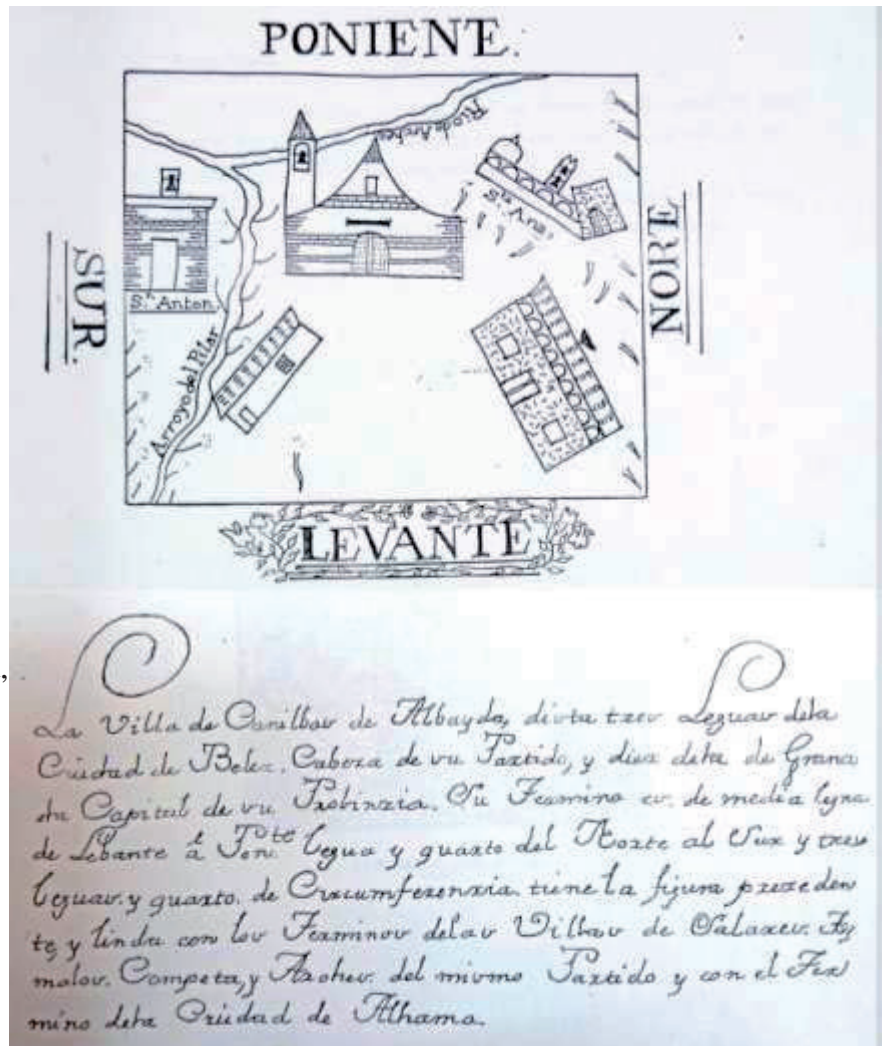 PONIENTE.
Rio de Arches
S.ta Ana
SUR.
NORE
S.n Anton
Arroyo del Pilar
LEVANTE
,
La Villa de Canillas de Albayda, dista tres Leguas dela
Ciudad de Belez. Cabeza de su Partido, y diez dela de Grana
da Capital de su Probinzia. Su Termino es. de media legua
de Lebante á Pon.te legua y quarto del Norte al Sur y tres
leguas. y quarto. de Circumferenzia. tiene la figura prezeden
te, y linda con los Terminos delas Villas de Salares.
malos. Competa, y Arches. del mismo Partido y con el Ter
mino dela Ciudad de Alhama.